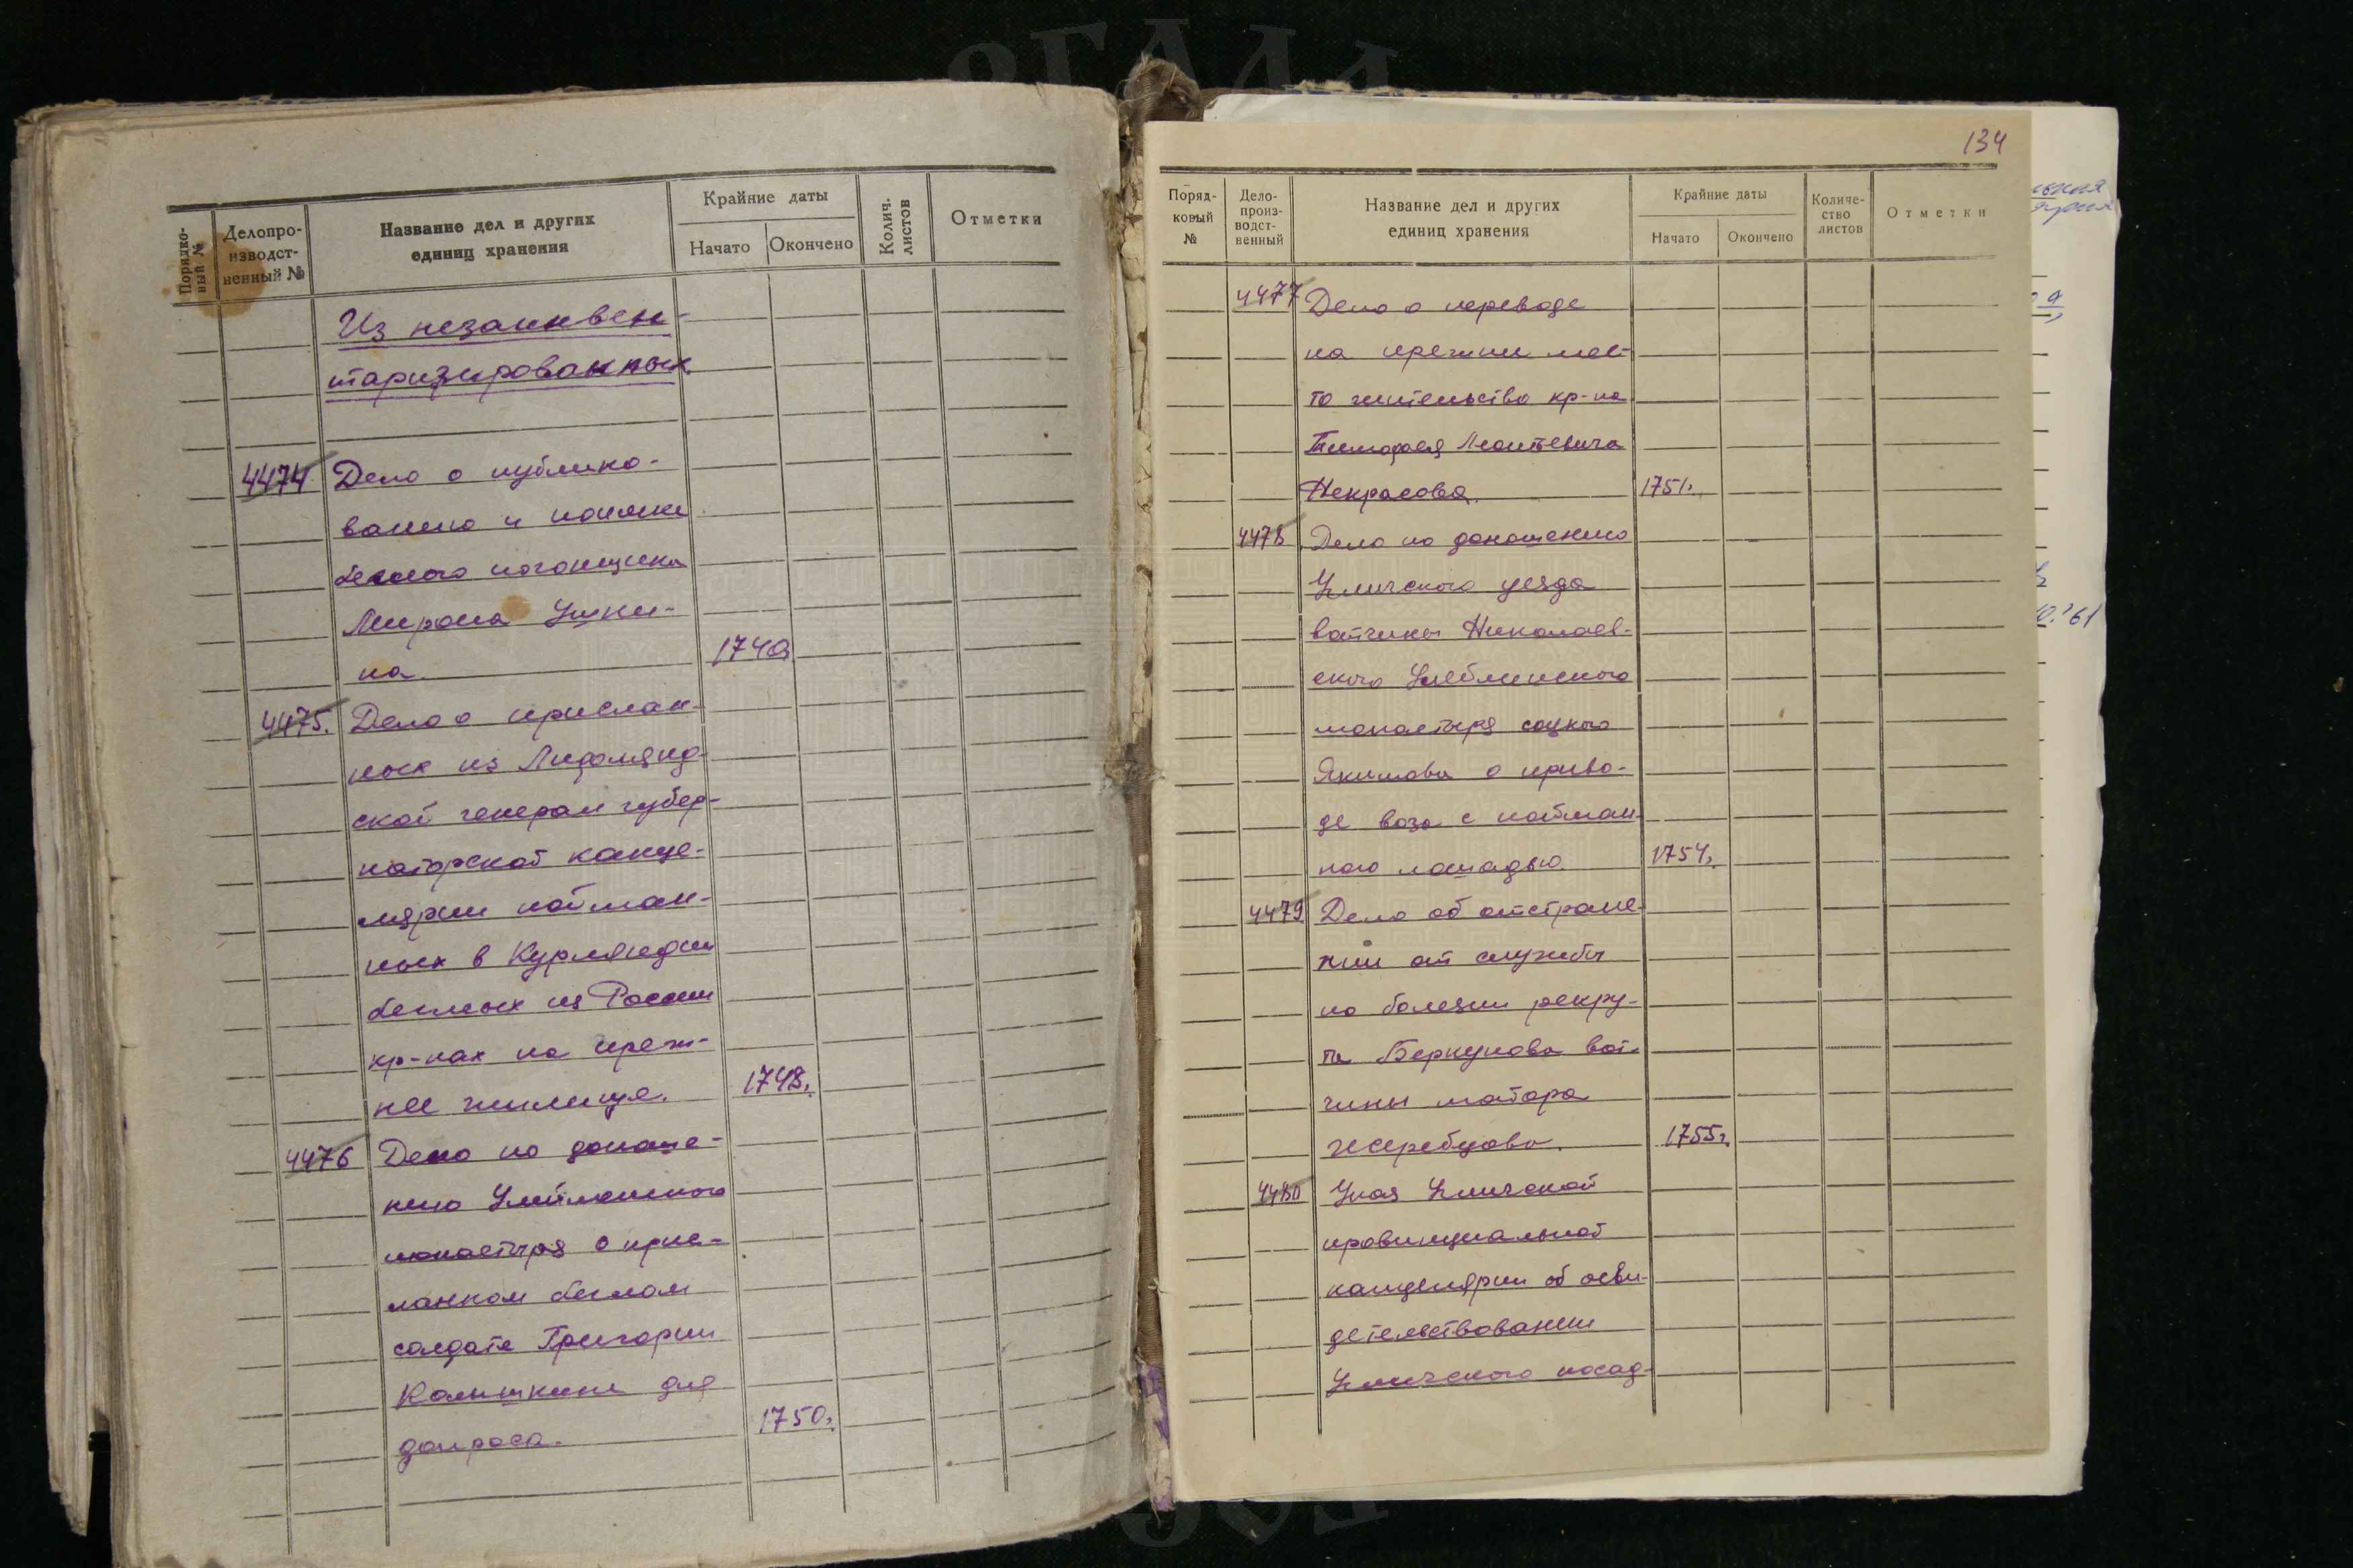 Порядко-
вый №
Делопро-
изводст-
венный №
Название дел и других
единиц хранения
Крайние даты
Начато
Окончено
Колич.
листов
Отметки
Из незаинвен-
таризированных
4474 Дело о публико-
вании и поимке
беглого погонщика
Мирона Ушки-
на. 1740
4475. Дело о прислан-
ных из Лифлянд-
ской генерал губер-
наторской канце-
лярии пойман-
ных в Курляндии
беглых из России
кр-нах на преж-
нее жилище. 1748.
4476 Дело по доноше-
нию
монастыря о прис-
ланном беглом
солдате Григории
для
допроса. 1750.
134
Поряд-
ковый
№
Дело-
произ-
водст-
венный
Название дел и других
единиц хранения
Крайние даты
Начато
Окончено
Количе-
ство
листов
Отметки
4477 Дело о переводе
на прежнее мес-
то жительства кр-на
Тимофея Леонтьевича
Некрасова. 1751.
4478 Дело по доношению
Угличского уезда
вотчины Николаев-
ского Улейминского
монастыря соцкого
Якимова о приво-
де воза с пойман-
ною лошадью. 1754.
4479 Дело об отстране-
нии от службы
по болезни рекру-
та Беркунова вот-
чины майора
Жеребцова. 1755г.
4480 Указ Угличской
провинциальной
канцелярии об осви-
детельствовании
Угличского посад-